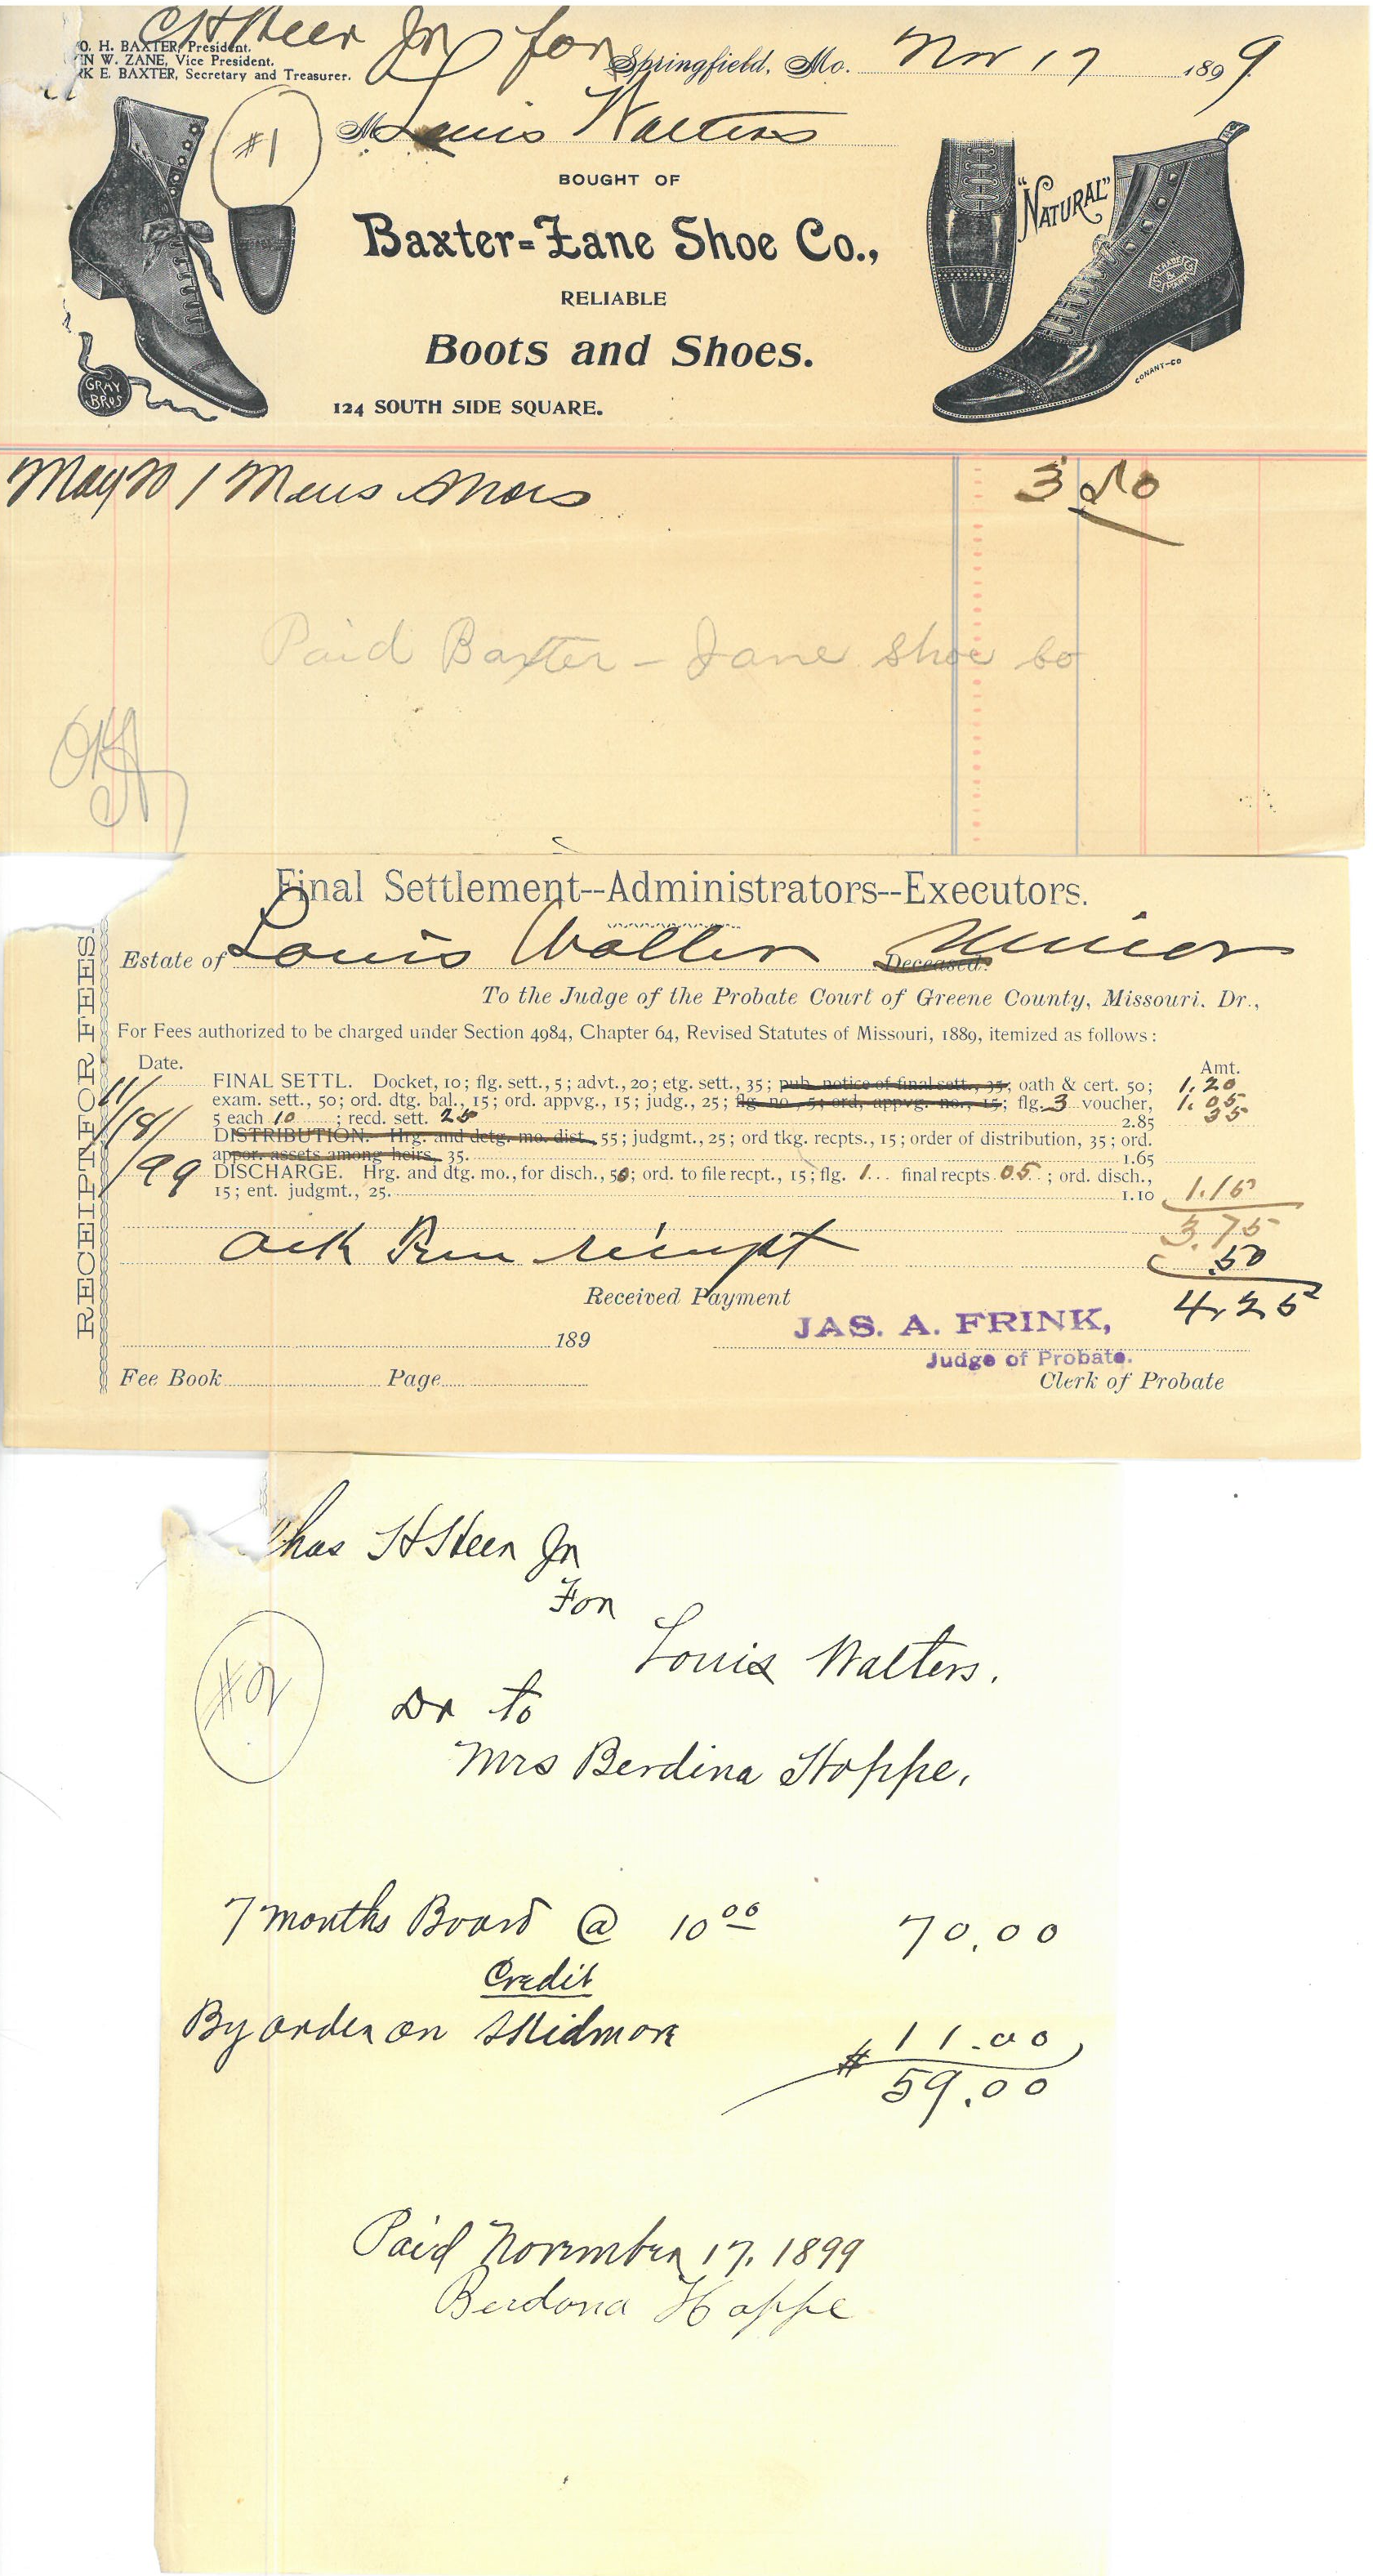 C H Heer Jr for
O. H. BAXTER, President.
N W. ZANE, Vice President.
RK E. BAXTER, Secretary and Treasurer.
Springfield, Mo. Nov 17 1899
#1
M Louis Walters
BOUGHT OF
Baxter=Zane Shoe Co.,
RELIABLE
Boots and Shoes.
124 SOUTH SIDE SQUARE.
GRAY BROS
"NATURAL"
TRADE MARK
CONANT-CO
May 20 1 Mens Shoes 3 50
Paid Baxter - Zane Shoe Co
OK
Final Settlement--Administrators--Executors.
Estate of Louis Walter Deceased. Minor
To the Judge of the Probate Court of Greene County, Missouri. Dr.,
For Fees authorized to be charged under Section 4984, Chapter 64, Revised Statutes of Missouri, 1889, itemized as follows:
Date. Amt.
11/18/99
FINAL SETTL. Docket, 10; flg. sett., 5; advt., 20; etg. sett., 35; pub. notice of final sett., 35; oath & cert. 50; 1.20
exam. sett., 50; ord. dtg. bal., 15; ord. appvg., 15; judg., 25; flg. no., 5; ord, appvg. no., 15; flg. 3 voucher, 1.05
5 each 10; recd. sett. 25 2.85 35
DISTRIBUTION. Hrg. and detg. mo. dist., 55; judgmt., 25; ord tkg. recpts., 15; order of distribution, 35; ord.
appor. assets among heirs, 35. 1.65
DISCHARGE. Hrg. and dtg. mo., for disch., 50; ord. to file recpt., 15; flg. 1 final recpts 05; ord. disch.,
15; ent. judgmt., 25. 1.10 1.15
3.75
ack receipt .50
4.25
Received Payment
JAS. A. FRINK,
Judge of Probate.
189
Fee Book Page Clerk of Probate
RECEIPT FOR FEES.
has H Heer Jr
For
Louis Walters.
#2
Dr to
Mrs Berdina Hoppe,
7 months Board @ 10 00 70.00
Credit
By order on Skidmore 11.00
# 59.00
Paid November 17, 1899
Berdona Hoppe